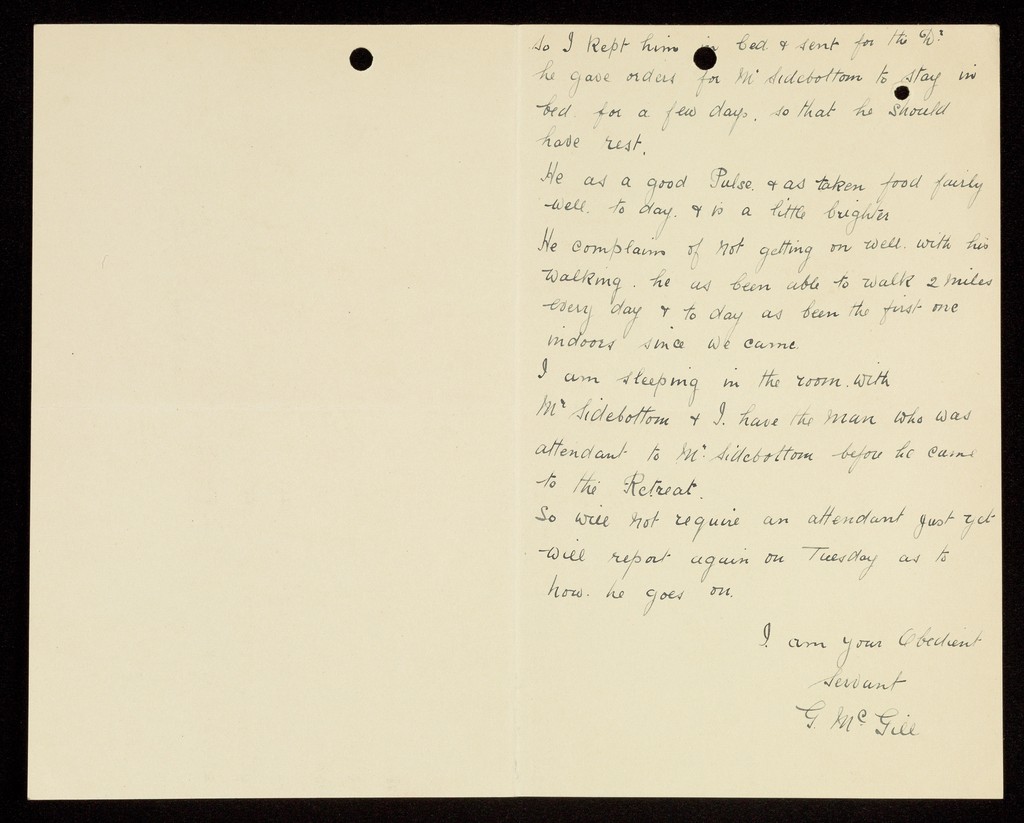 so I kept him in bed & sent for the Dr.
he gave orders for Mr Sidebottom to stay in
bed. for a few days. so that he should
have rest.
He as a good Pulse. & as taken food fairly
well. to day. & is a little brighter
He complains of not getting on well. with his
walking. he as been able to walk 2 miles
every day & to day as been the first one
indoors since we came
I am sleeping in the room. with
Mr Sidebottom & I. have the man who was
attendant to Mr. Sidebottom before he came
to the Retreat.
So will not require an attendant just yet
will report again on Tuesday as to
how. he goes on.
I. am your Obedient
Servant
G. Mc. Gill